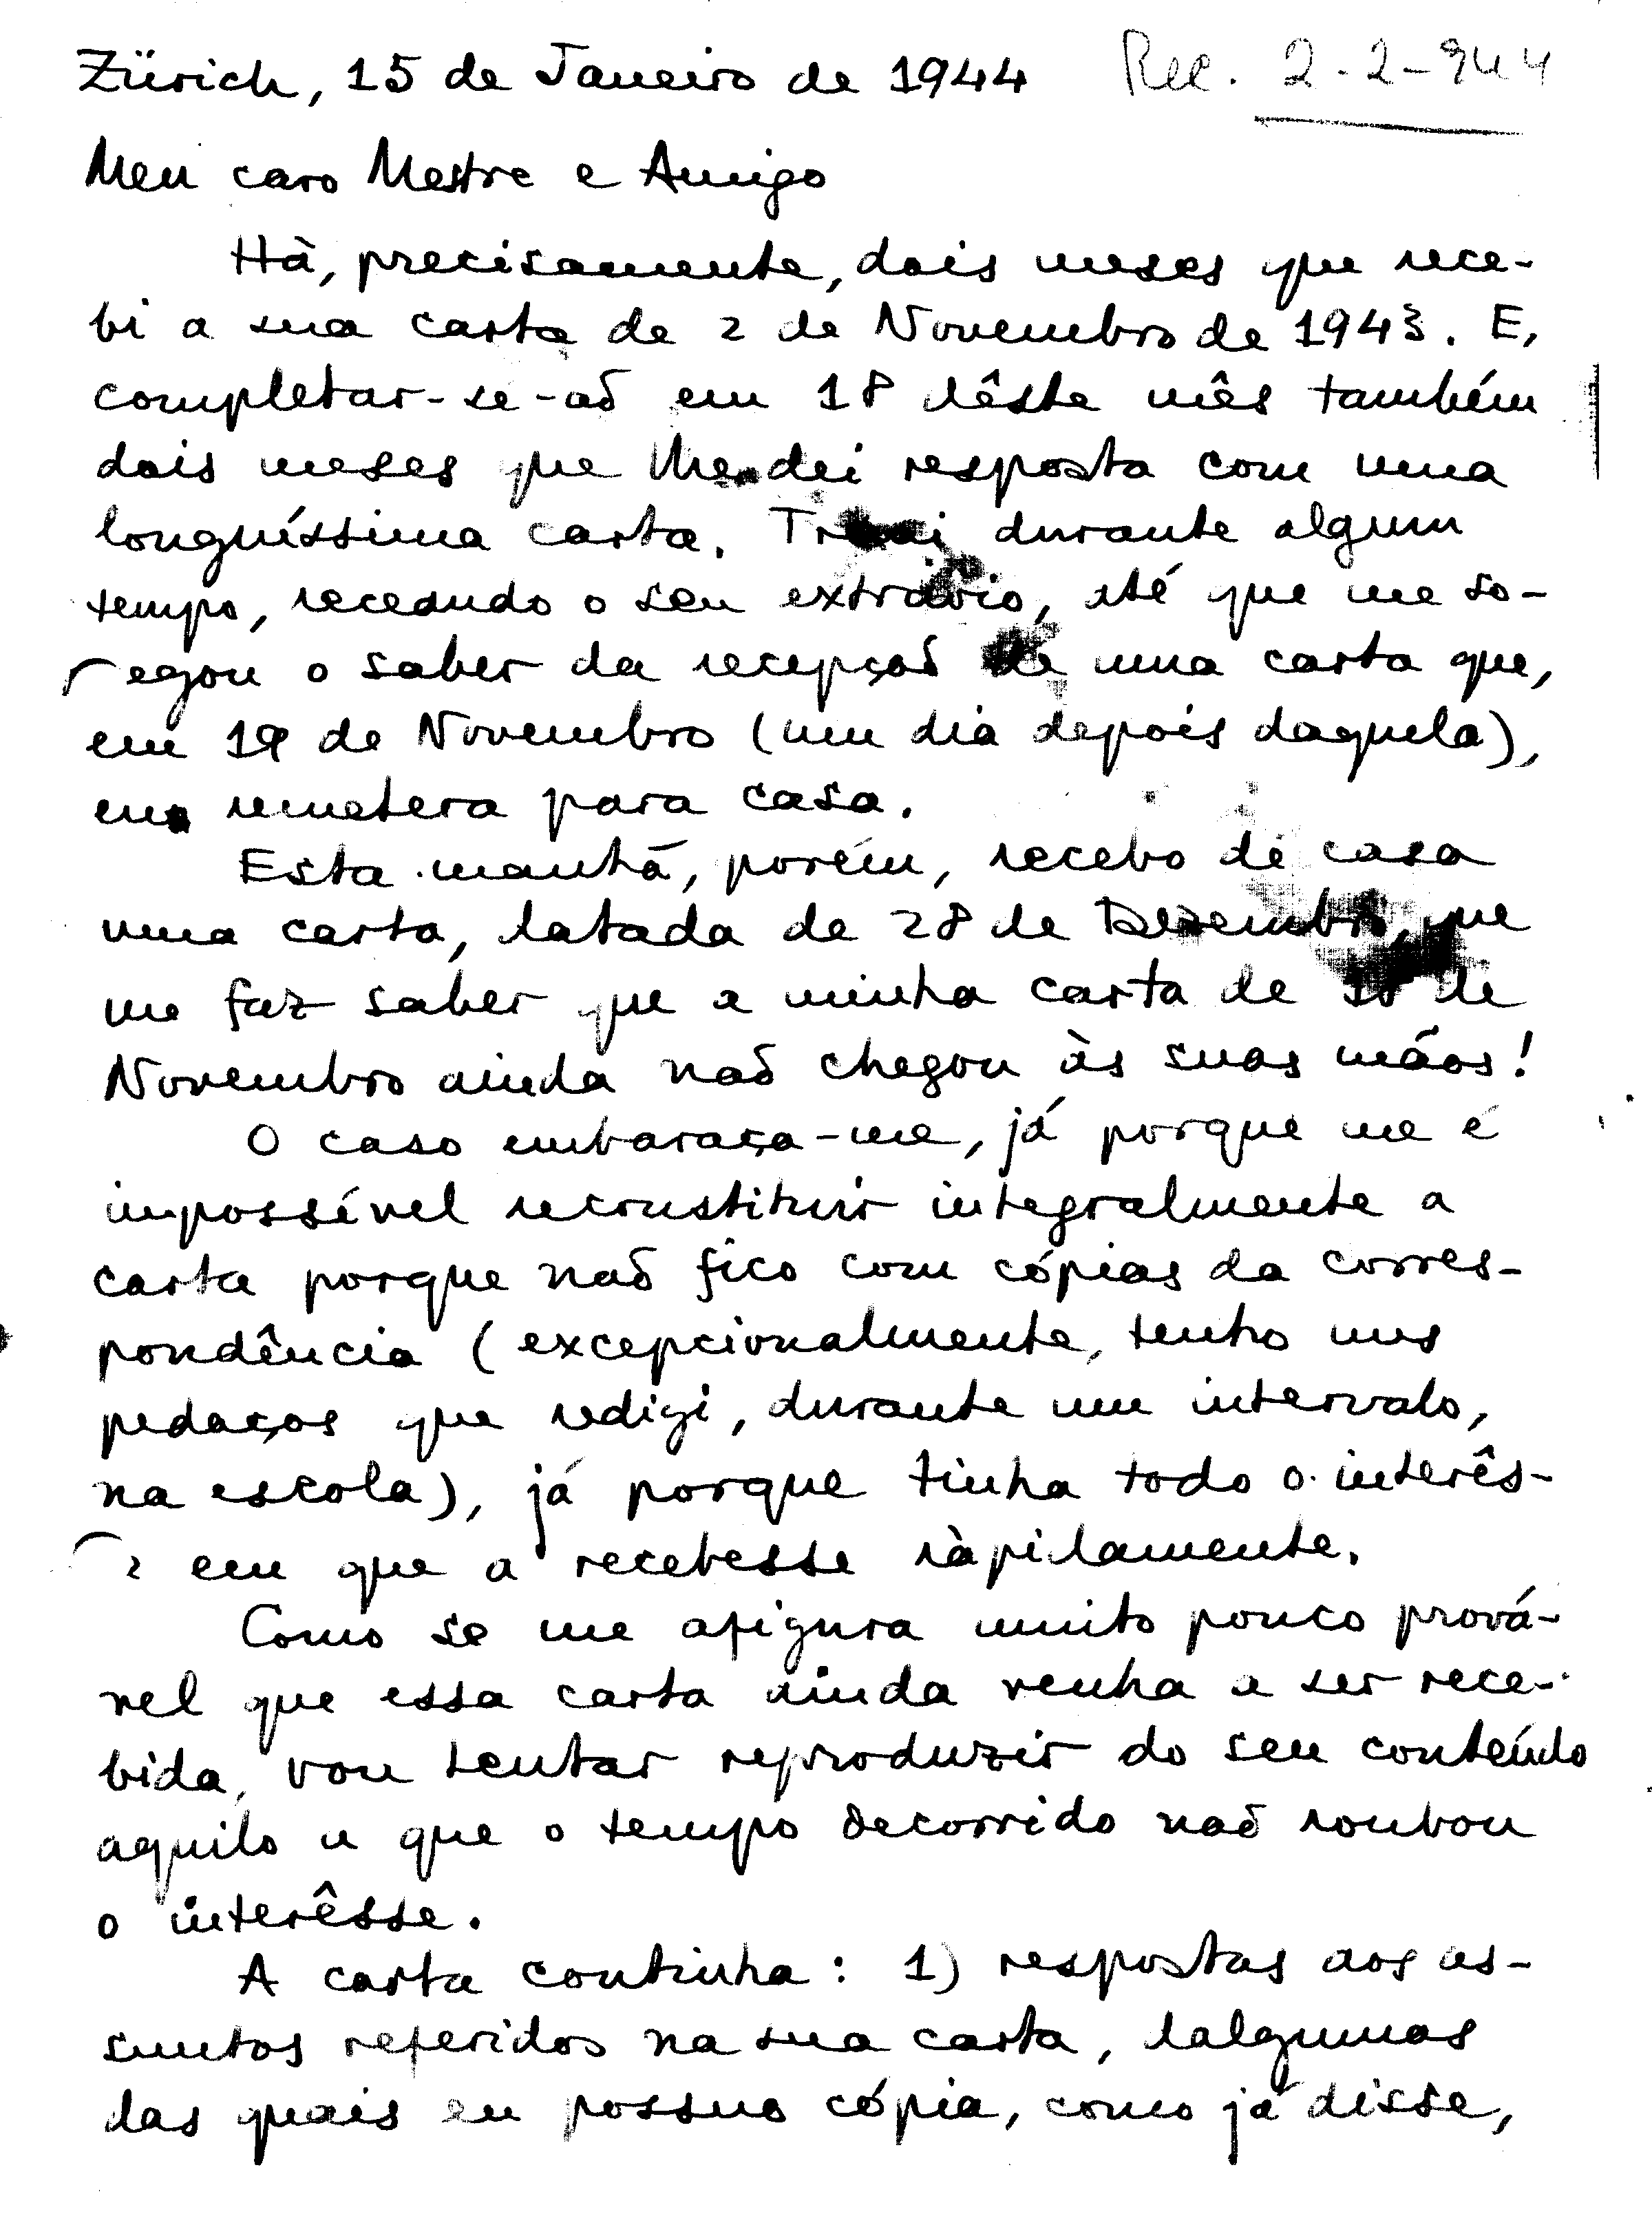 Zürich, 15 de Janeiro de 1944 Rec. 2-2-944
Meu caro Mestre e Amigo
Hà, precisamente, dois meses que rece-
bi a sua carta de 2 de Novembro de 1943. E,
completar-se-aõ em 18 dêste mês também
dois meses que lhe dei resposta com uma
longuíssima carta. durante algum
tempo, receando o seu extravio, até que me so-
egou o saber da recepçaõ de uma carta que,
em 19 de Novembro (um dia depois daquela),
eu remetera para casa.
Esta manhã, porém, recebo de casa
uma carta, datada de 28 de Dezembro, que
me faz saber que a minha carta de 18 de
Novembro ainda naõ chegou às suas mãos!
O caso embaraça-me, já porque me é
impossível reconstituir integralmente a
carta porque naõ fico com cópias da corres-
pondência (excepcionalmente, tenho uns
pedaços que redigi, durante um intervalo,
na escola), já porque tinha todo o interês-
em que a recebesse ràpidamente.
Como se me afigura muito pouco prová-
vel que essa carta ainda venha a ser rece-
bida, vou tentar reproduzir do seu conteúdo
aquilo a que o tempo decorrido naõ roubou
o interêsse.
A carta continha: 1) respostas aos as-
suntos referidos na sua carta, dalgumas
das quais eu possuo cópia, como já disse,